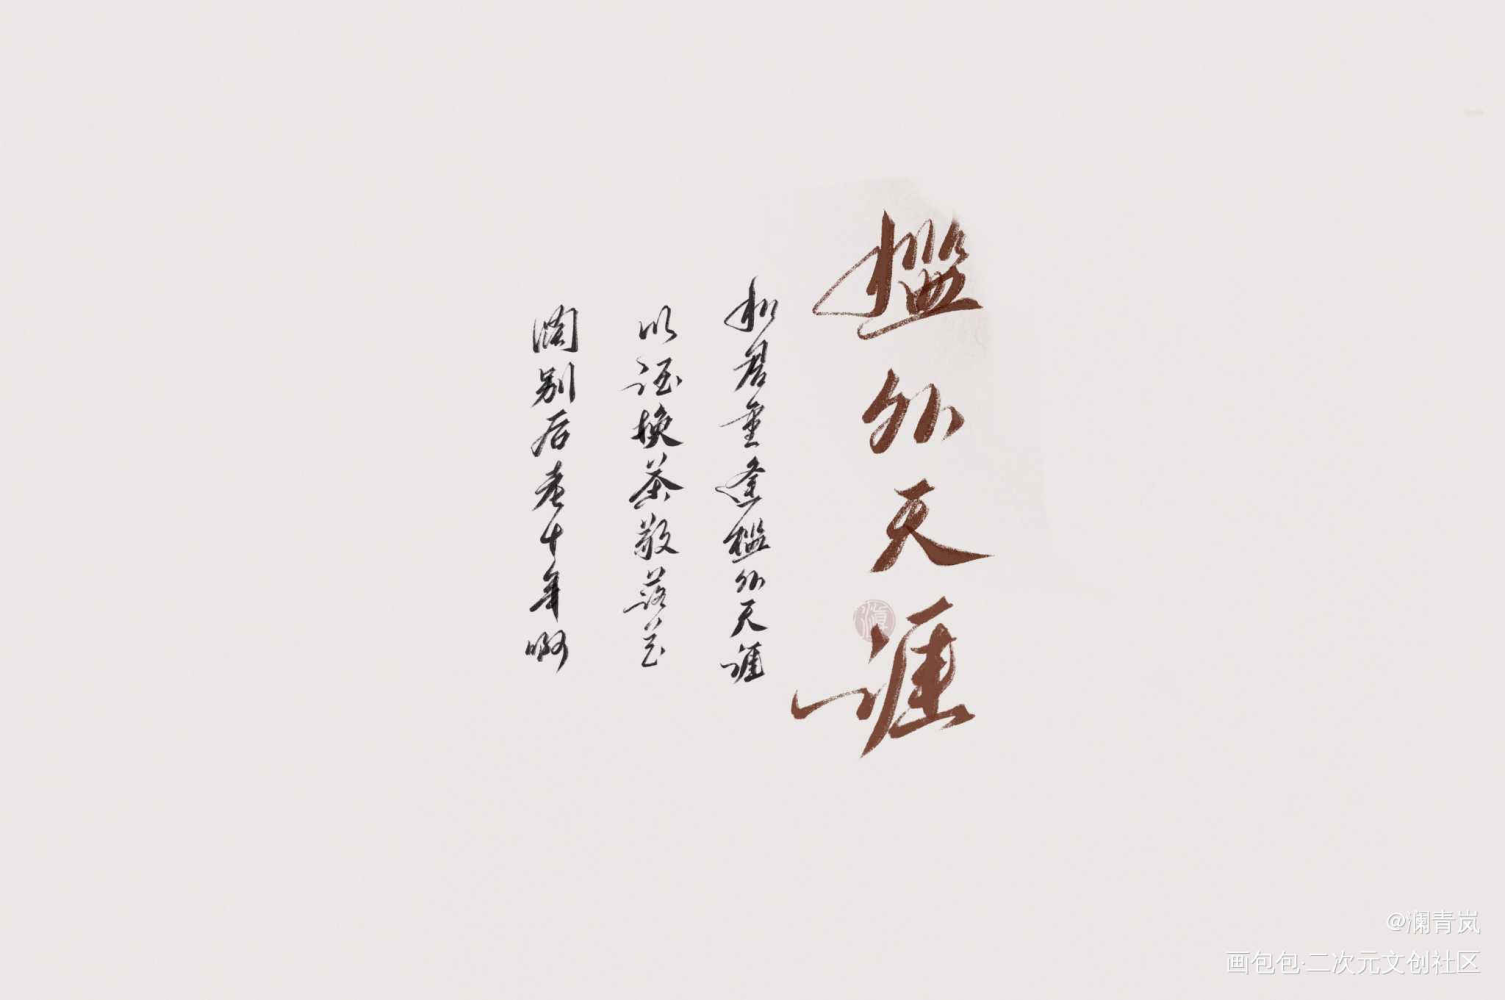 槛外天涯
和君重逢槛外天涯
以酒换茶敬落花
阔别后老十年啊
@澜青岚
画包包·二次元文创社区